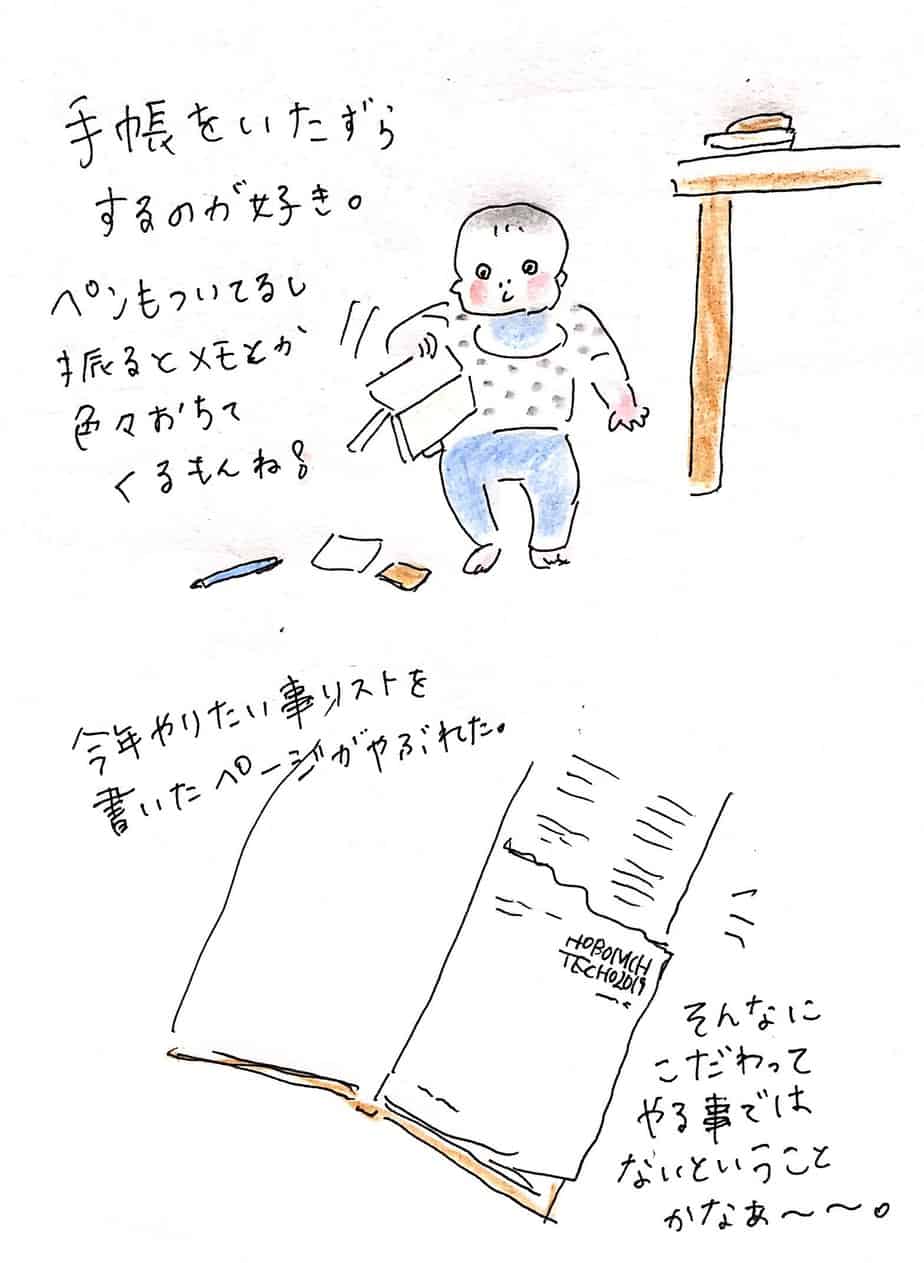 手帳をいたずら
するのが好き。
ペンもついてるし
振るとメモとか
色々おちて
くるもんね!
今年やりたい事リストを
書いたページがやぶれた。
HOBONICHI
TECHO2019
そんなに
こだわって
やる事では
ないということ
かなぁ〜〜。